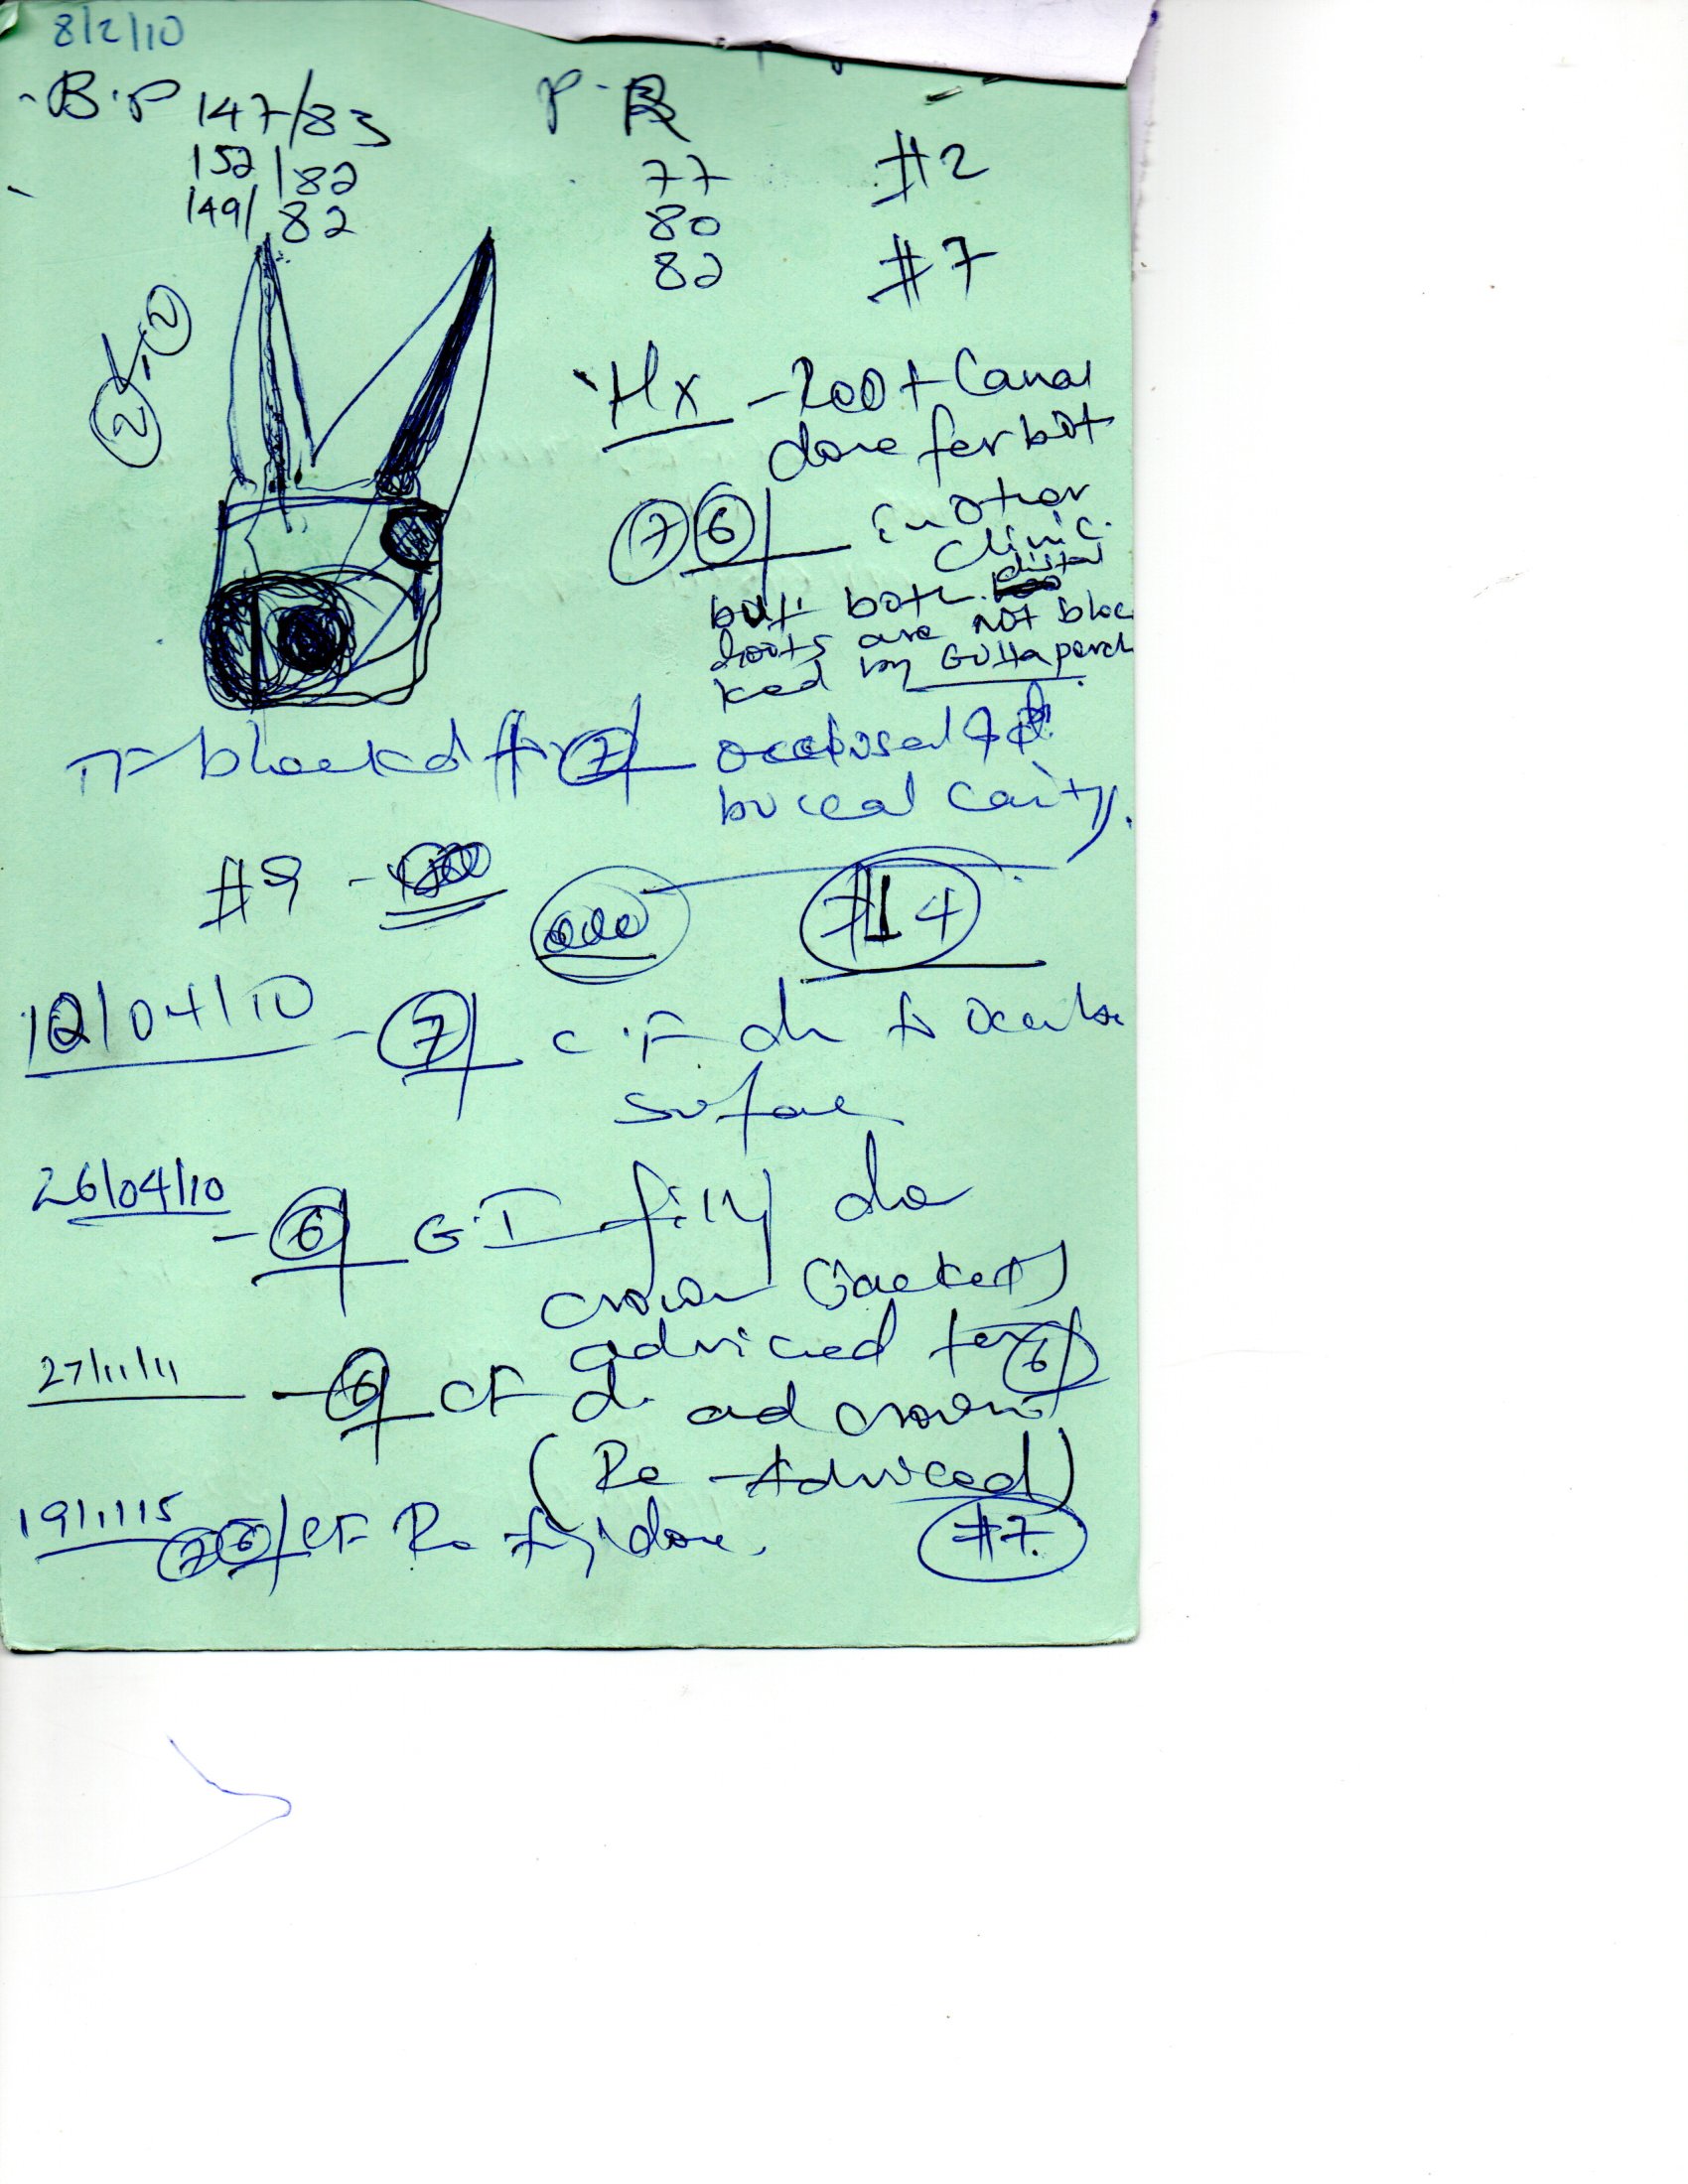 8/2/10
- B.P 147/83 P.R
152/82 77 #2
149/82 80
82 #7
2 - 2
Hx - Root Canal
done for bot
7 6 in other
clinic.
but both distal
roots are not bloc
ked by Gutta perch
TF blocked for 7 occlusal &
buccal cavity.
#9
#14
12/04/10 - 7 C.F
surface
26/04/10 - 6 G.I filly
crown (Jacket)
adviced for 6
27/11/11 - 6 CF ad crown
(Re-Adviced)
19/1/15 7 6 CF Re done. #7.